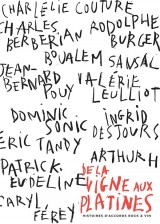 CHARLÉLIE COUTURE
CHARLES BERBERIAN
RODOLPHE BURGER
BOUALEM SANSAL
JEAN-BERNARD POUY
VALÉRIE LEULLIOT
DOMINIC SONIC
INGRID DESJOURS
ERIC TANDY
ARTHUR H
PATRICK EUDELINE
CARYL FÉREY
DE LA
VIGNE AUX
PLATINES
HISTOIRES D'ACCORDS ROCK & VIN